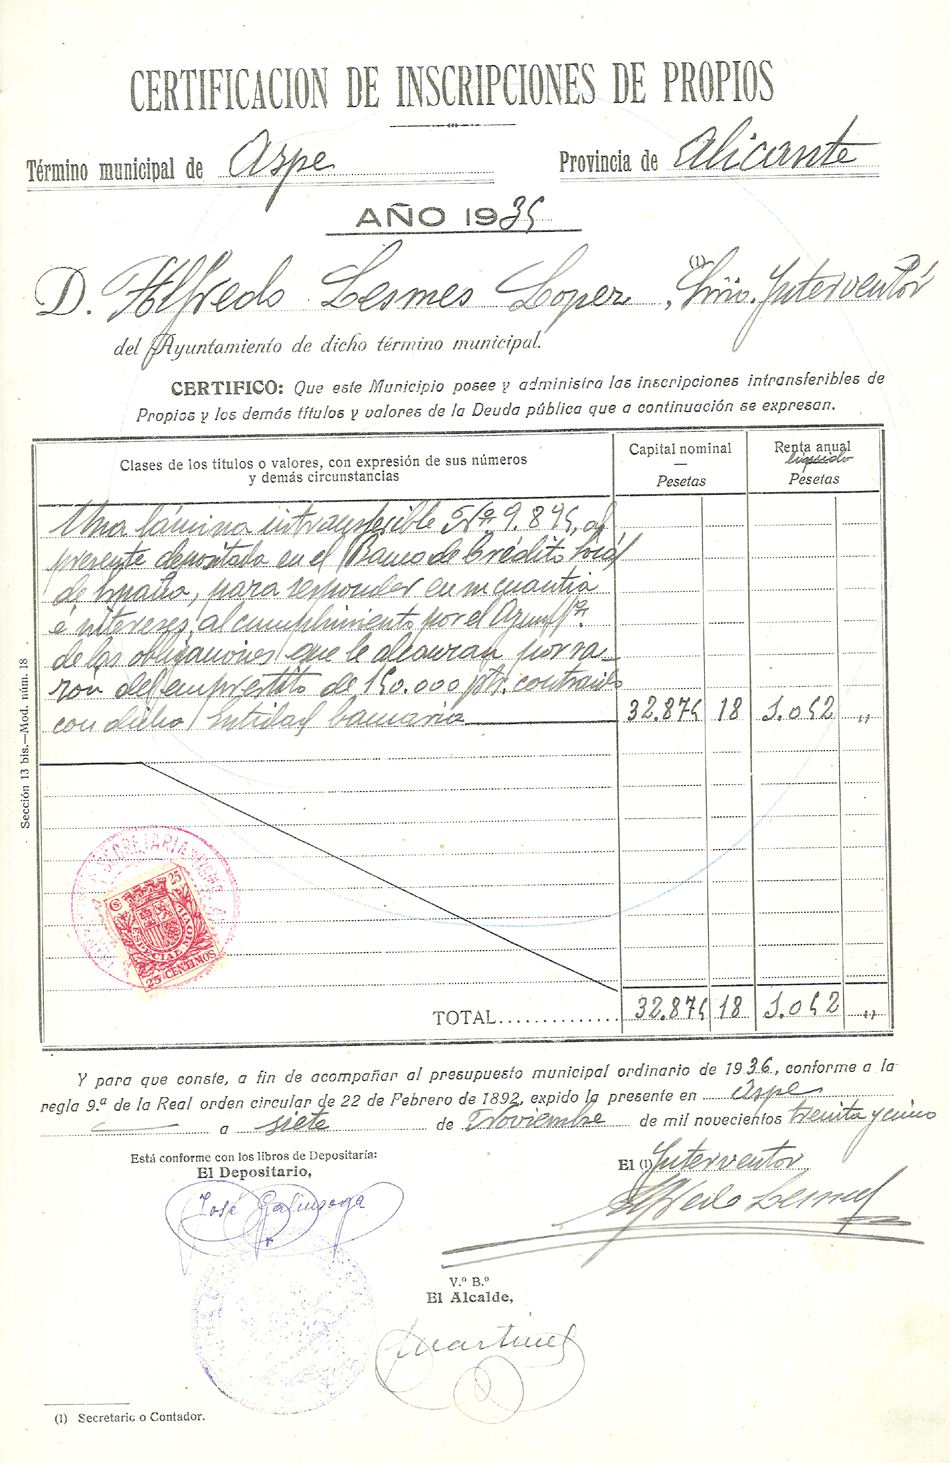 CERTIFICACION DE INSCRIPCIONES DE PROPIOS
Término municipal de Aspe Provincia de Alicante
AÑO 1935
(1)
D. Alfredo Lesmes Lopez, Srio. Interventór
del Ayuntamiento de dicho término municipal.
CERTIFICO: Que este Municipio posee y administra las inscripciones intransferibles de
Propios y los demás títulos y valores de la Deuda pública que a continuación se expresan.
Clases de los títulos o valores, con expresión de sus números
y demás circunstancias
Capital nominal
—
Pesetas
Renta anual
liquido
Pesetas
Una lámina intransferible Nº 9.845, al
presente depositada en el Banco de Crédito Local
de España, para responder en su cuantia
é intereses, al cumplimiento por el Ayuntº
de las obligaciones que le alcanzan por ra-
zón del emprestito de 150.000 pts. contraido
con dicha Entidad bancaria 32.875 18 1.052 ,,
Sección 13 bis.—Mod. núm. 18.
SECRETARIA
25
ESPECIAL MOVIL
25 CENTIMOS
TOTAL 32.875 18 1.052 ,,
Y para que conste, a fin de acompañar al presupuesto municipal ordinario de 1936, conforme a la
regla 9.ª de la Real orden circular de 22 de Febrero de 1892, expido la presente en Aspe
a siete de Noviembre de mil novecientos treinta y cinco
Está conforme con los libros de Depositaría:
El Depositario,
El (1) Interventor
José Galinsoga
Alfredo Lesmes
V.º B.º
El Alcalde,
Martinez
(1) Secretario o Contador.